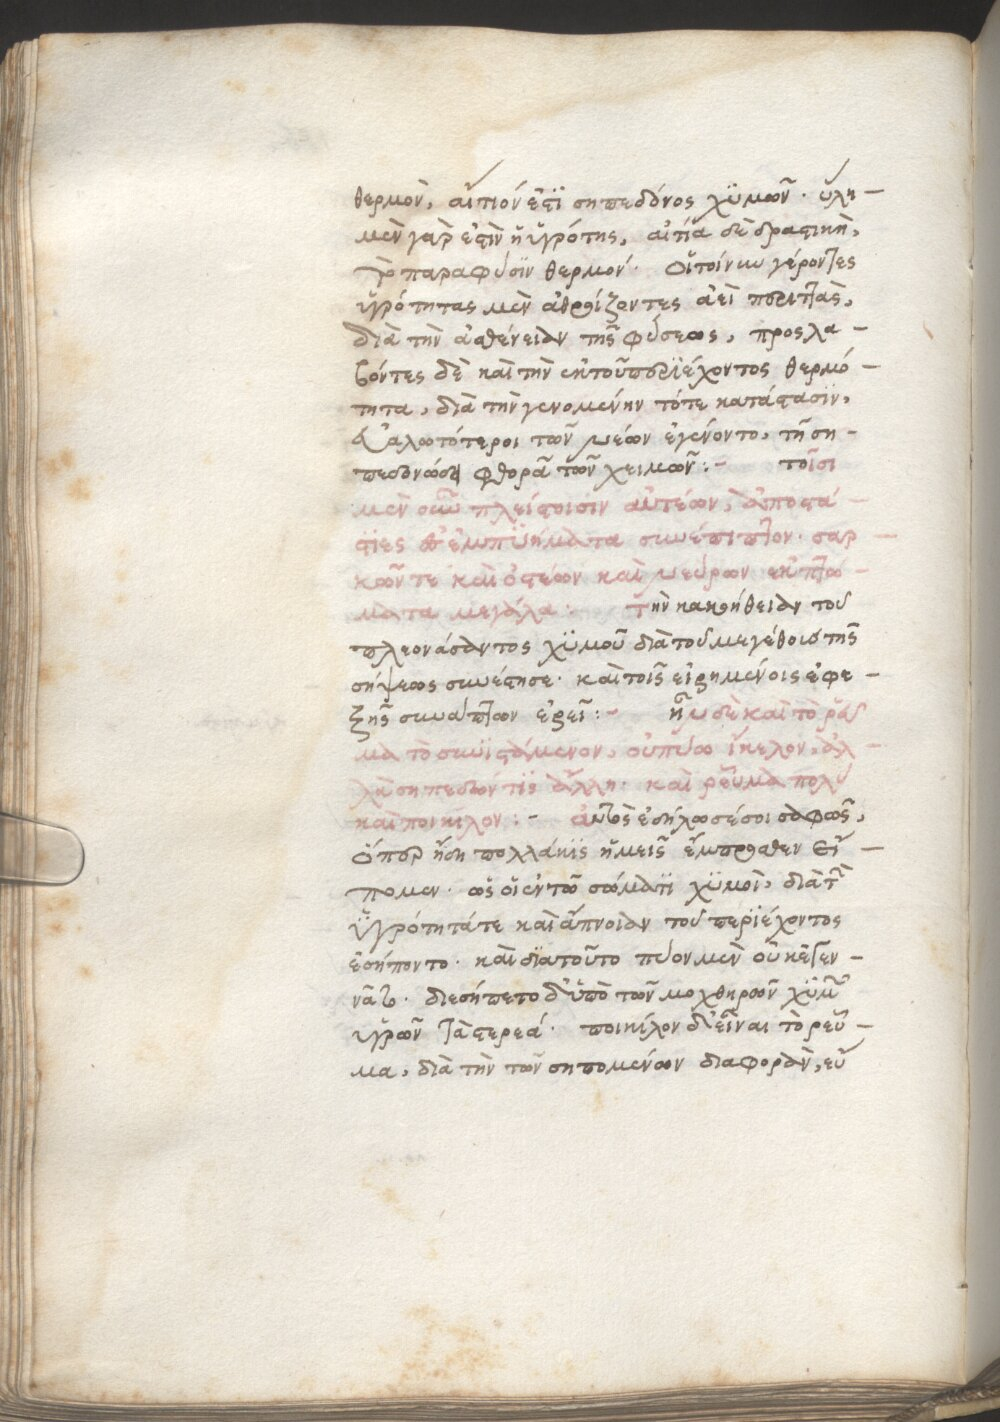 θερμὸν, αἴτιόν ἐστι σηπεδόνος χϋμῶν · ὕλη –
μὲν γὰρ ἐστὶν ἡ ὑγρότης, αἰτία δὲ δραστικὴ,
τὸ παραφύσϊν θερμόν · οἱ τοίνυν γέροντες
ὑγρότητας μὲν ἀθροίζοντες ἀεὶ περιττὰς,
διὰ τὴν ἀσθένειαν τῆς φύσεως, προσλα –
βόντες δὲ καὶ τὴν ἐκ τοῦ περϊέχοντος θερμό –
τητα, διὰ τὴν γενομένην τότε κατάστασϊν,
εὐαλωτότεροι τῶν νέων ἐγένοντο, τῇ ση –
πεδονώδει φθορᾷ τῶν χειμῶν : – τοῖσι
μὲν οὖν πλείστοισιν αὐτέων, ἀποστά –
σϊες ἐς ἐμπϋήματα συνέπιπτον · σαρ –
κῶν τε καὶ ὀστέων καὶ νεύρων ἐκπτώ –
ματα μεγάλα : τὴν κακοήθειαν τοῦ
πλεονάσαντος χϋμοῦ διὰ τοῦ μεγέθους τῆς
σήψεως συνέστησε · καὶ τοῖς εἰρημένοις ἐφε –
ξῆς συνάπτων ἐρεῖ : – ἦν δὲ καὶ τὸ ῥεῦ
μα τὸ συνϊστάμενον, οὐ πύῳ ἴκελον, ἀλ –
λὰ σηπεδών τϊς ἄλλη · καὶ ῥεῦμα πολὺ
καὶ ποικίλον : – αὐτὸς ἐδήλωσέ σοι σαφῶς,
ὅπερ ἤδη πολλάκϊς ἡμεῖς ἔμπροσθεν εἴ –
πομεν · ὡς οἱ ἐν τῷ σώματϊ χϋμοὶ, διὰ τὴν
ὑγρότητά τε καὶ ἄπνοιαν τοῦ περϊέχοντος
ἐσήποντο · καὶ διατοῦτο πύον μὲν οὐκ ἐγεν –
νᾶτο · διεσήπετο δ' ὑπὸ τῶν μοχθηρῶν χϋμῶν
ὑγρῶν τὰ στερεά · ποικίλον δ' εἶναι τὸ ρεῦ –
μα, διὰ τὴν τῶν σηπομένων διαφορὰν, εὐ